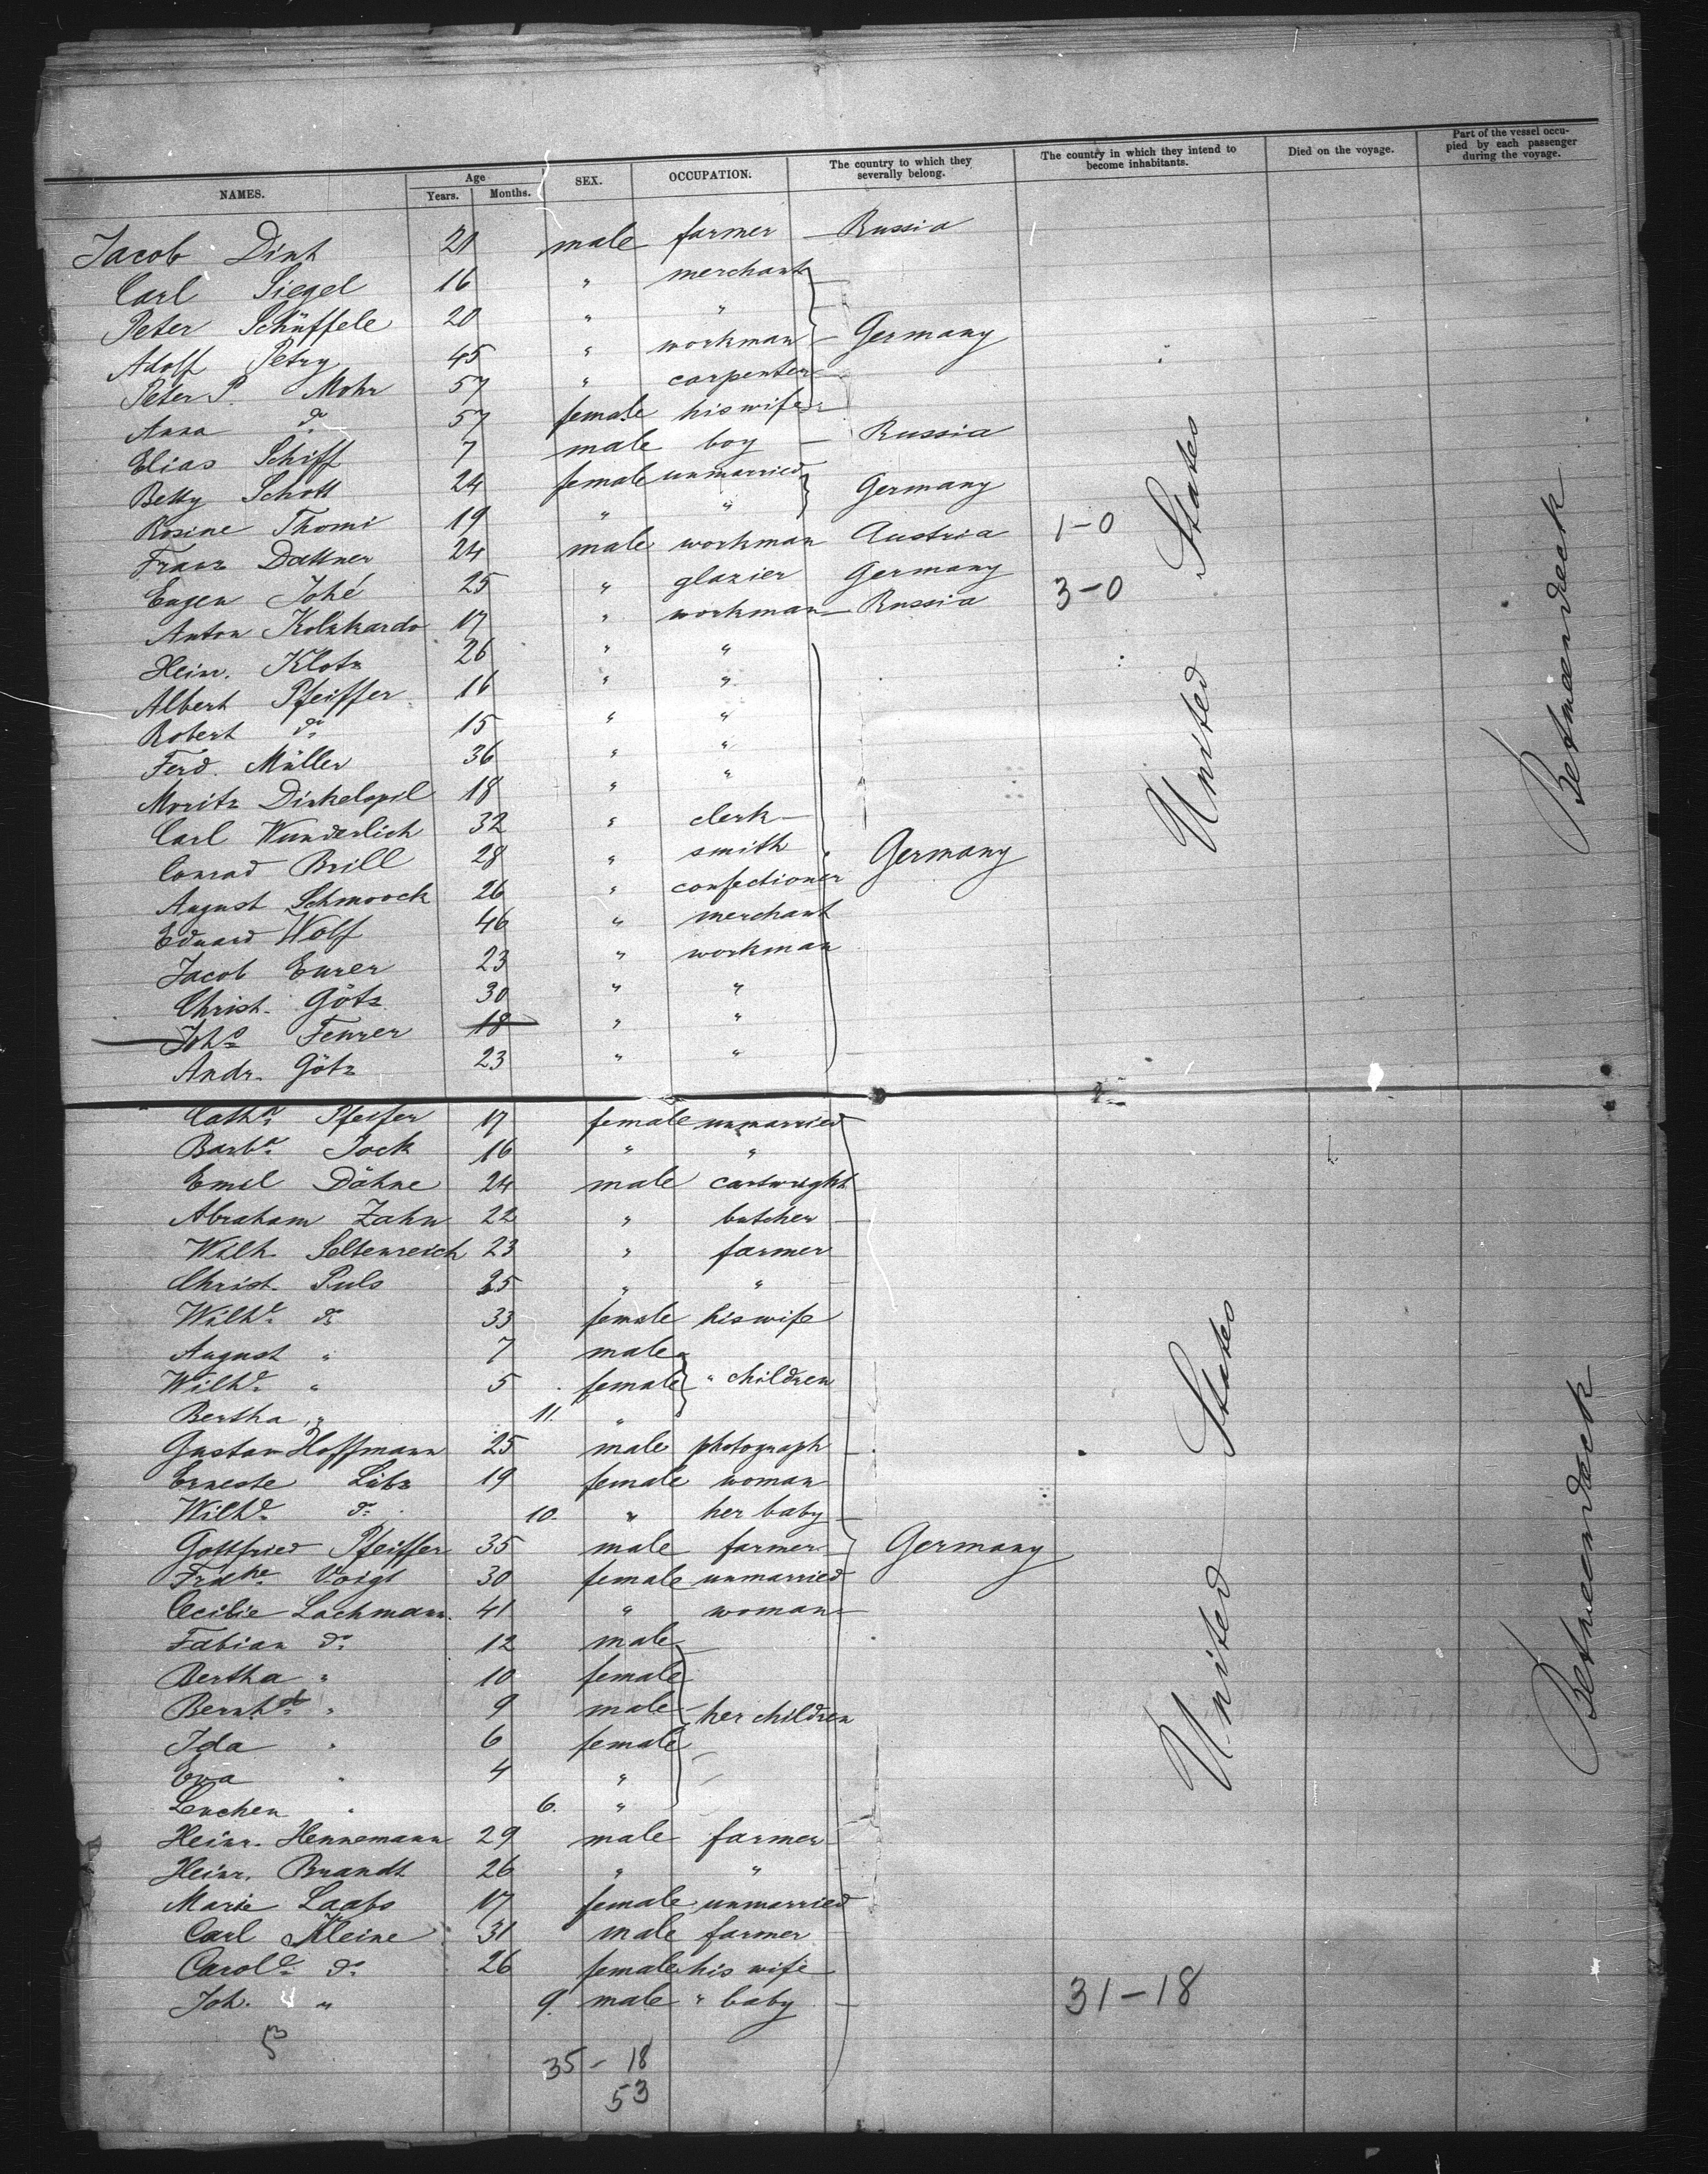 NAMES. Age Years. Months. SEX. OCCUPATION. The country to which they severally belong. The country in which they intend to become inhabitants. Died on the voyage. Part of the vessel occupied by each passenger during the voyage.
Jacob Dint 21 male farmer — Russia
Carl Siegel 16 " merchant
Peter Schüffele 20 " "
Adolf Petry 45 " workman Germany
Peter P. Mohr 57 " carpenter
Anna do 57 female his wife
Elias Schiff 7 male boy — Russia
Betty Schott 24 female unmarried Germany
Rosine Thomi 19 " "
Franz Dattner 24 male workman Austria 1-0
Eugen Johé 25 " glazier Germany
Anton Kolzkardo 17 " workman — Russia 3-0
Heinr. Klotz 26 " "
Albert Pfeiffer 16 " "
Robert do 15 " "
Ferd. Müller 36 " "
Moritz Dinkelspil 18 " "
Carl Wunderlich 32 " clerk
Conrad Brill 28 " smith Germany
August Schmoock 26 " confectioner
Eduard Wolf 46 " merchant
Jacob Eurer 23 " workman
Christ. Götz 30 " "
Johs Feurer 18 " "
Andr. Götz 23 " "
United States
Betweendeck
Catha Pfeifer 17 female unmarried
Barba Jock 16 " "
Emil Dähne 24 male cartwright
Abraham Zahn 22 " butcher
Wilh. Seltenreich 23 " farmer
Christ. Puls 25 " "
Wilhe do 33 female his wife
August " 7 male
Wilhe " 5 female " children
Bertha " 11. "
Gustav Hoffmann 25 male photograph
Erneste Lütz 19 female woman
Wilhe do 10. " her baby
Gottfried Pfeiffer 35 male farmer Germany
Fridke Voigt 30 female unmarried
Cecilie Lachmann. 41 " woman
Fabian do 12 male
Bertha " 10 female
Bernhd " 9 male her children
Ida " 6 female
Eva " 4 "
Lenchen " 6. "
Heinr. Hennemann 29 male farmer
Heinr. Brandt 26 " "
Marie Laabs 17 female unmarried
Carl Kleine 31 male farmer
Carole do 26 female his wife
Joh. " 9. male " baby 31-18
53
35 - 18
53
United States
Betweendeck